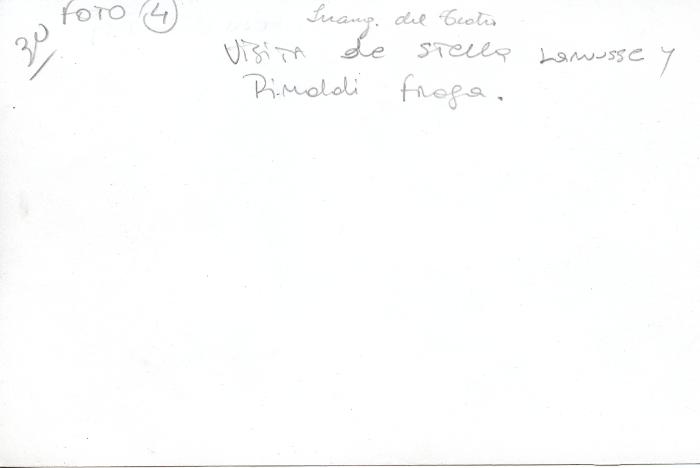 FOTO 4 Inaug. del Teatro
30/ Visita de Stella Lanusse y
Rinaldi Fraga.